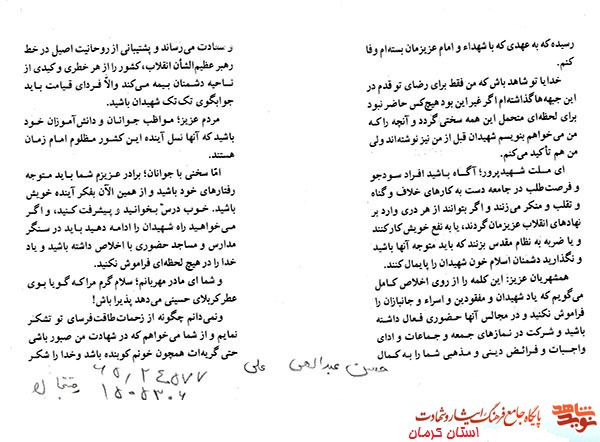 رسیده که به عهدی که با شهداء و امام عزیزمان بسته‌ام وفا
کنم.
خدایا تو شاهد باش که من فقط برای رضای تو قدم در
این جبهه‌ها گذاشته‌ام اگر غیر این بود هیچ‌کس حاضر نبود
برای لحظه‌ای متحمل این همه سختی گردد و آنچه را که
من می‌خواهم بنویسم شهیدان قبل از من نیز نوشته‌اند ولی
من هم تأکید می‌کنم.
ای ملت شهیدپرور؛ آگاه باشید افراد سودجو
و فرصت‌طلب در جامعه دست به کارهای خلاف و گناه
و تقلب و منکر می‌زنند و اگر بتوانند از هر دری وارد بر
نهادهای انقلاب عزیزمان گردند، یا به نفع خویش کار کنند
و یا ضربه به نظام مقدس بزنند که باید متوجه آنها باشید
و نگذارید دشمنان اسلام خون شهیدان را پایمال کنند.
همشهریان عزیز: این کلمه را از روی اخلاص کامل
می‌گویم که یاد شهیدان و مفقودین و اسراء و جانبازان را
فراموش نکنید و در مجالس آنها حضوری فعال داشته
باشید و شرکت در نمازهای جمعه و جماعات و ادای
واجبات و فرائض دینی و مذهبی شما را به کمال
و سعادت می‌رساند و پشتیبانی از روحانیت اصیل در خط
رهبر عظیم‌الشأن انقلاب، کشور را از هر خطری و کیدی از
ناحیه دشمنان بیمه می‌کند والاّ فردای قیامت باید
جوابگوی تک‌تک شهیدان باشید.
مردم عزیز؛ مواظب جوانان و دانش‌آموزان خود
باشید که آنها نسل آینده این کشور مظلوم امام زمان
هستند.
امّا سخنی با جوانان؛ برادر عزیزم شما باید متوجه
رفتارهای خود باشید و از همین الآن بفکر آینده خویش
باشید. خوب درس بخوانید و پیشرفت کنید، و اگر
می‌خواهید راه شهیدان را ادامه دهید باید در سنگر
مدارس و مساجد حضوری با اخلاص داشته باشید و یاد
خدا را در هیچ لحظه‌ای فراموش نکنید.
و شما ای مادر مهربانم؛ سلام گرم مرا که گویا بوی
عطر کربلای حسینی می‌دهد پذیرا باش!
و نمی‌دانم چگونه از زحمات طاقت‌فرسای تو تشکر
نمایم و از شما می‌خواهم که در شهادت من صبور باشی
حتی گریه‌ات همچون خونم کوبنده باشد و خدا را شکر
حسن عبدالهی علی
۶۵/۲۴۵۷۷
۱۵۰۵۳۰۶
نوید شاهد
پایگاه جامع فرهنگ ایثار و شهادت
استان کرمان